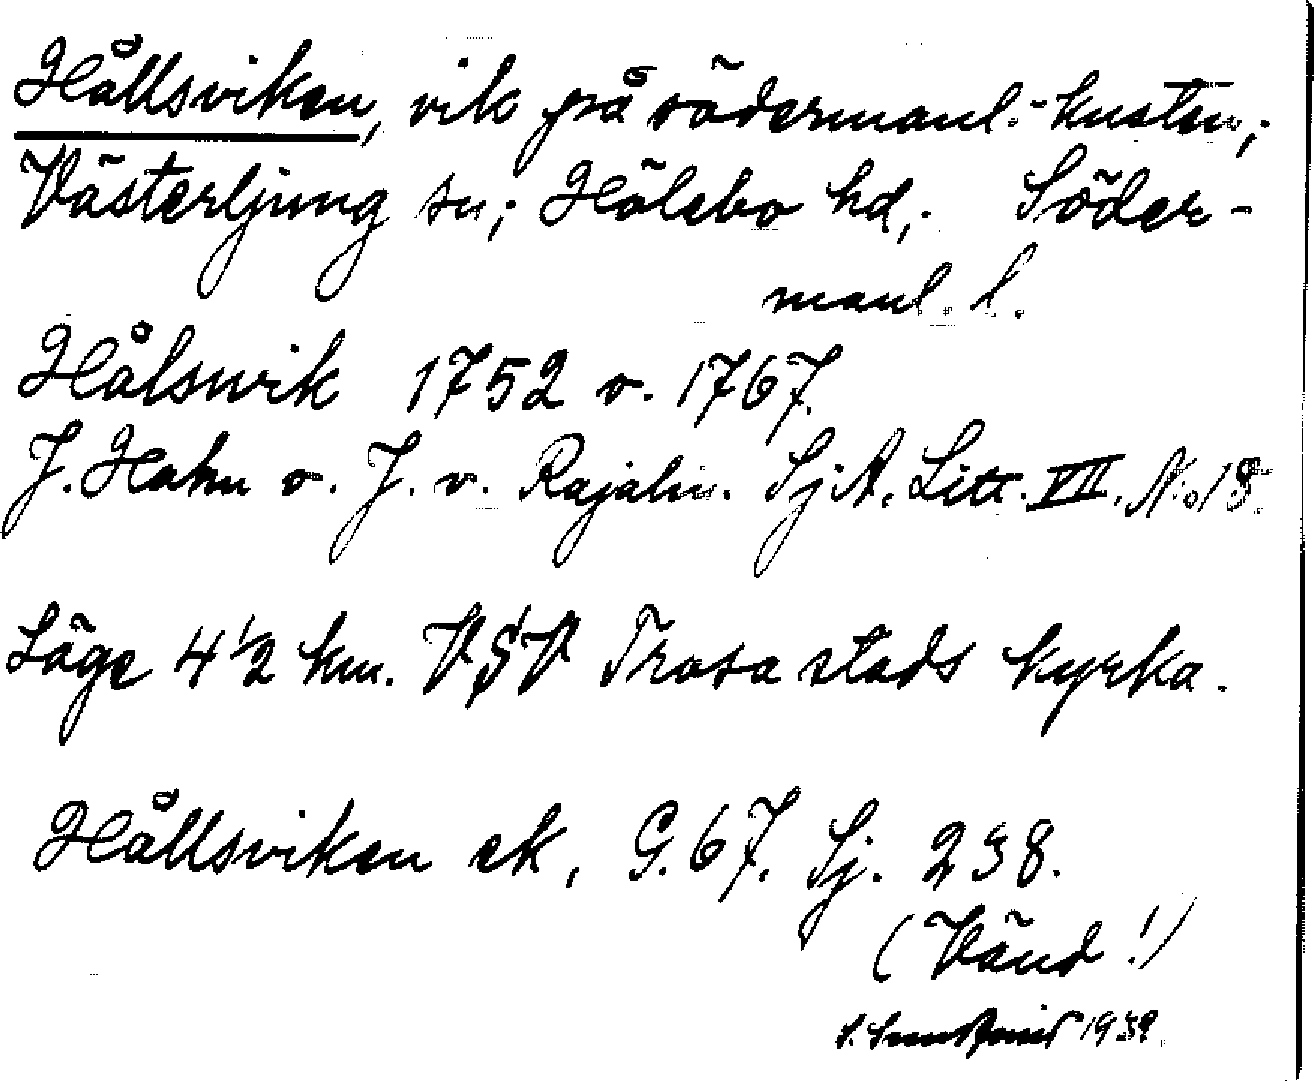 Hållsviken, vik på södermanl.-kusten;
Västerljung sn; Hölebo hd,. Söder-
manl. l.
Hålswik 1752 o. 1767.
J. Hahn o. J. v. Rajalin. SjA. Litt. VII. No 18.
Läge 4 1/2 km. VSV Trosa stads kyrka.
Hållsviken ek, G. 67. Sj. 238.
(Vänd!)
1939.